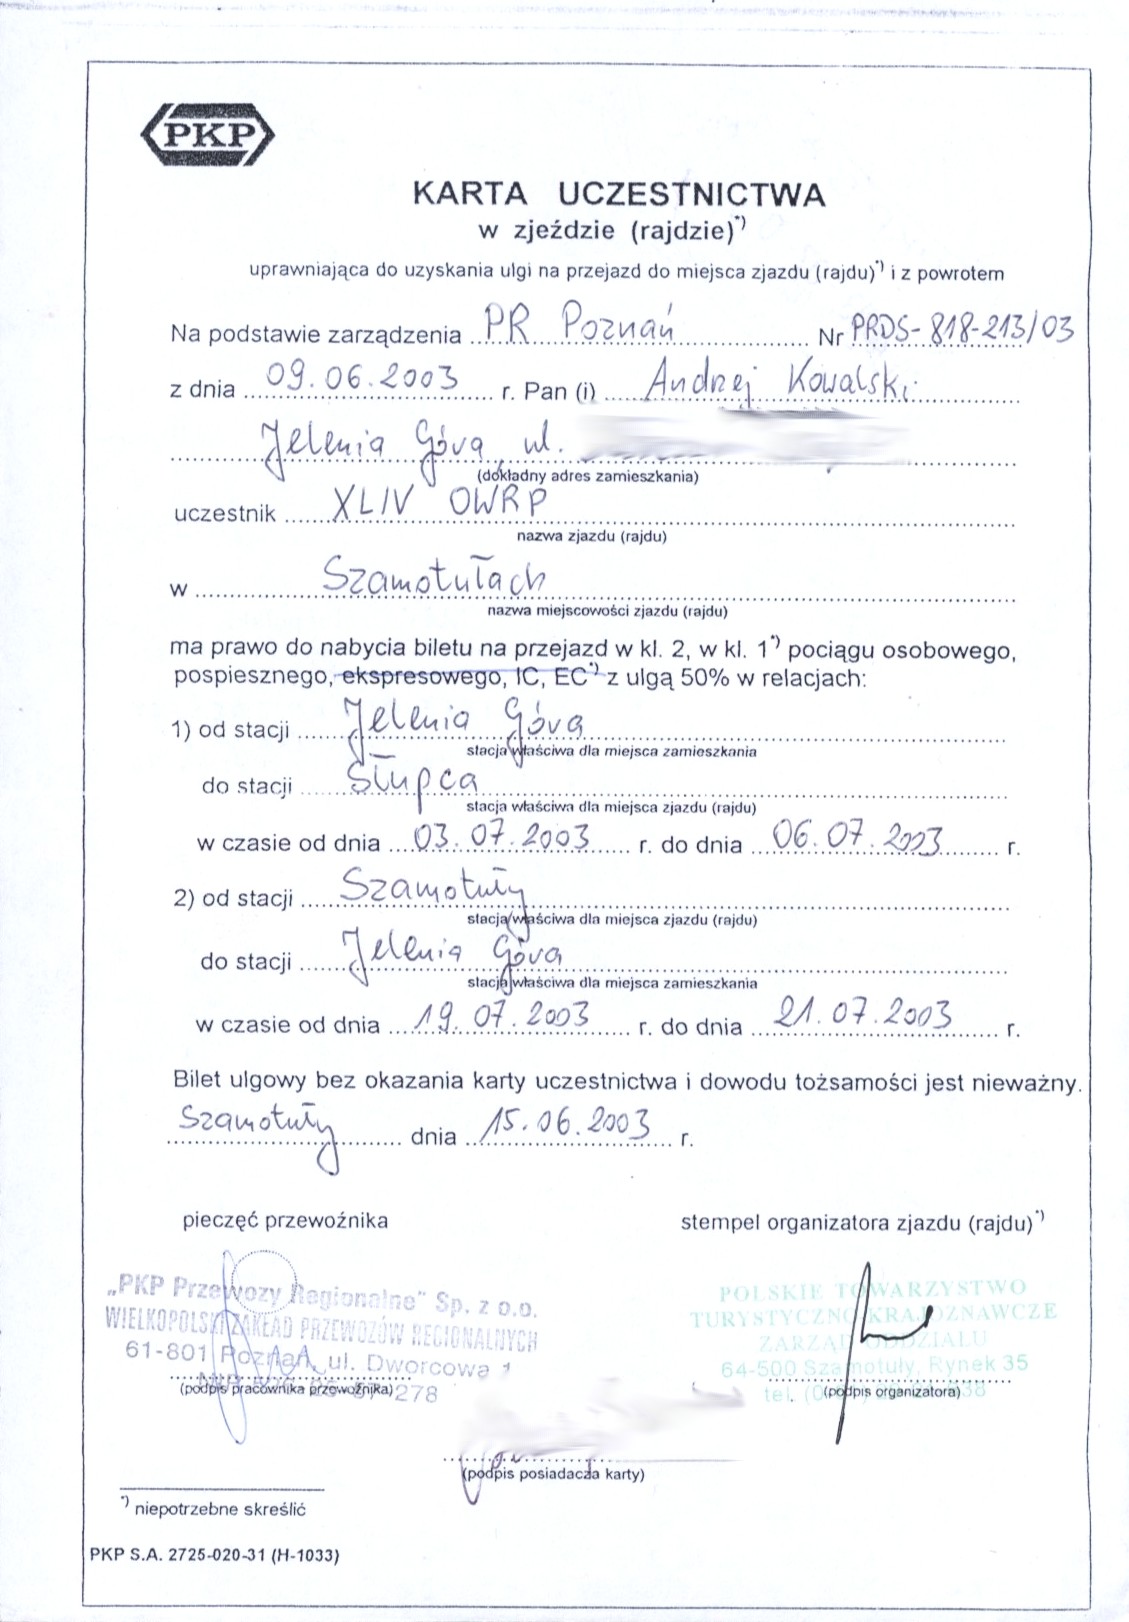 PKP
KARTA UCZESTNICTWA
w zjeździe (rajdzie)*)
uprawniająca do uzyskania ulgi na przejazd do miejsca zjazdu (rajdu)*) i z powrotem
Na podstawie zarządzenia PR Poznań Nr PRDS-818-213/03
z dnia 09.06.2003 r. Pan (i) Andrzej Kowalski
Jelenia Góra ul.
(dokładny adres zamieszkania)
uczestnik XLIV OWRP
nazwa zjazdu (rajdu)
w Szamotułach
nazwa miejscowości zjazdu (rajdu)
ma prawo do nabycia biletu na przejazd w kl. 2, w kl. 1*) pociągu osobowego,
pospiesznego, ekspresowego, IC, EC*) z ulgą 50% w relacjach:
1) od stacji Jelenia Góra
stacja właściwa dla miejsca zamieszkania
do stacji Słupca
stacja właściwa dla miejsca zjazdu (rajdu)
w czasie od dnia 03.07.2003 r. do dnia 06.07.2003 r.
2) od stacji Szamotuły
stacja właściwa dla miejsca zjazdu (rajdu)
do stacji Jelenia Góra
stacja właściwa dla miejsca zamieszkania
w czasie od dnia 19.07.2003 r. do dnia 21.07.2003 r.
Bilet ulgowy bez okazania karty uczestnictwa i dowodu tożsamości jest nieważny.
Szamotuły dnia 15.06.2003 r.
pieczęć przewoźnika
stempel organizatora zjazdu (rajdu)*)
„PKP Przewozy Regionalne" Sp. z o.o.
WIELKOPOLSKI ZAKŁAD PRZEWOZÓW REGIONALNYCH
61-801 Poznań, ul. Dworcowa 1
278
(podpis pracownika przewoźnika)
POLSKIE TOWARZYSTWO
TURYSTYCZNO KRAJOZNAWCZE
ZARZĄD ODDZIAŁU
64-500 Szamotuły, Rynek 35
tel.
(podpis organizatora)
(podpis posiadacza karty)
*) niepotrzebne skreślić
PKP S.A. 2725-020-31 (H-1033)